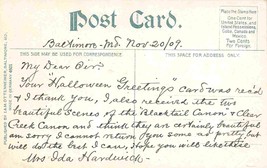 Post Card.
Place the Stamp Here
One Cent for
United States
and Island Possessions,
Cuba, Canada and
Mexico.
Two Cents
For Foreign
THIS SIDE MAY BE USED FOR CORRESPONDENCE
THIS SPACE FOR ADDRESS ONLY
Baltimore - Md. Nov. 20/09.
My Dear Sir:
Your "Halloween Greetings" card was rec'd
& I thank you, I also received the two
Beautiful Scenes of the Blacktail Canon & Clear
Creek Canon and think they are certainly beautiful
am sorry I cannot return you some as pretty but
will do the best I can, Hope you will like these
Mrs Ida Hardwick -